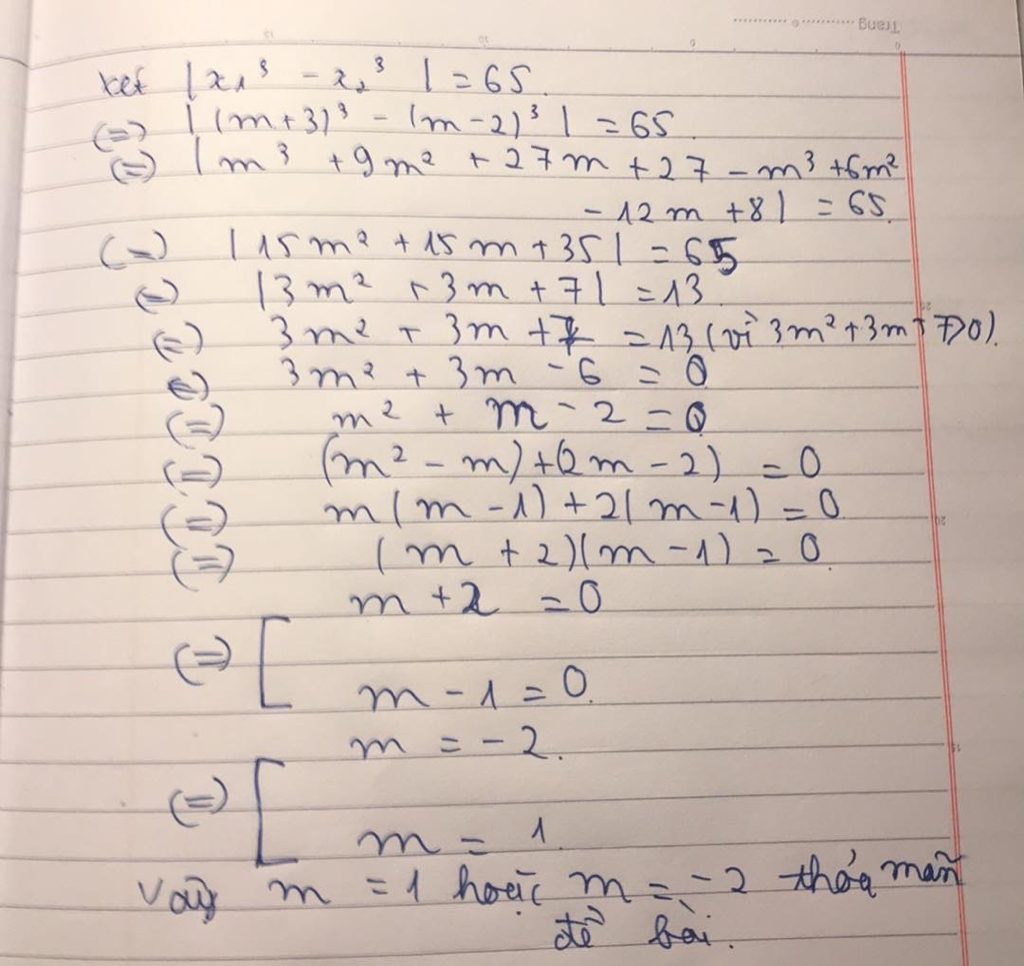 Trang
xét |x₁³ - x₂³| = 65
(=) |(m+3)³ - (m-2)³| = 65
(=) |m³ + 9m² + 27m + 27 - m³ + 6m²
- 12m + 8| = 65
(=) |15m² + 15m + 35| = 65
(=) |3m² + 3m + 7| = 13
(=) 3m² + 3m + 7 = 13 (vì 3m² + 3m + 7 > 0).
(=) 3m² + 3m - 6 = 0
(=) m² + m - 2 = 0
(=) (m² - m) + (2m - 2) = 0
(=) m(m - 1) + 2(m - 1) = 0
(=) (m + 2)(m - 1) = 0
m + 2 = 0
(=) [
m - 1 = 0.
m = -2.
(=) [
m = 1.
Vậy m = 1 hoặc m = -2 thỏa mãn
đề bài.